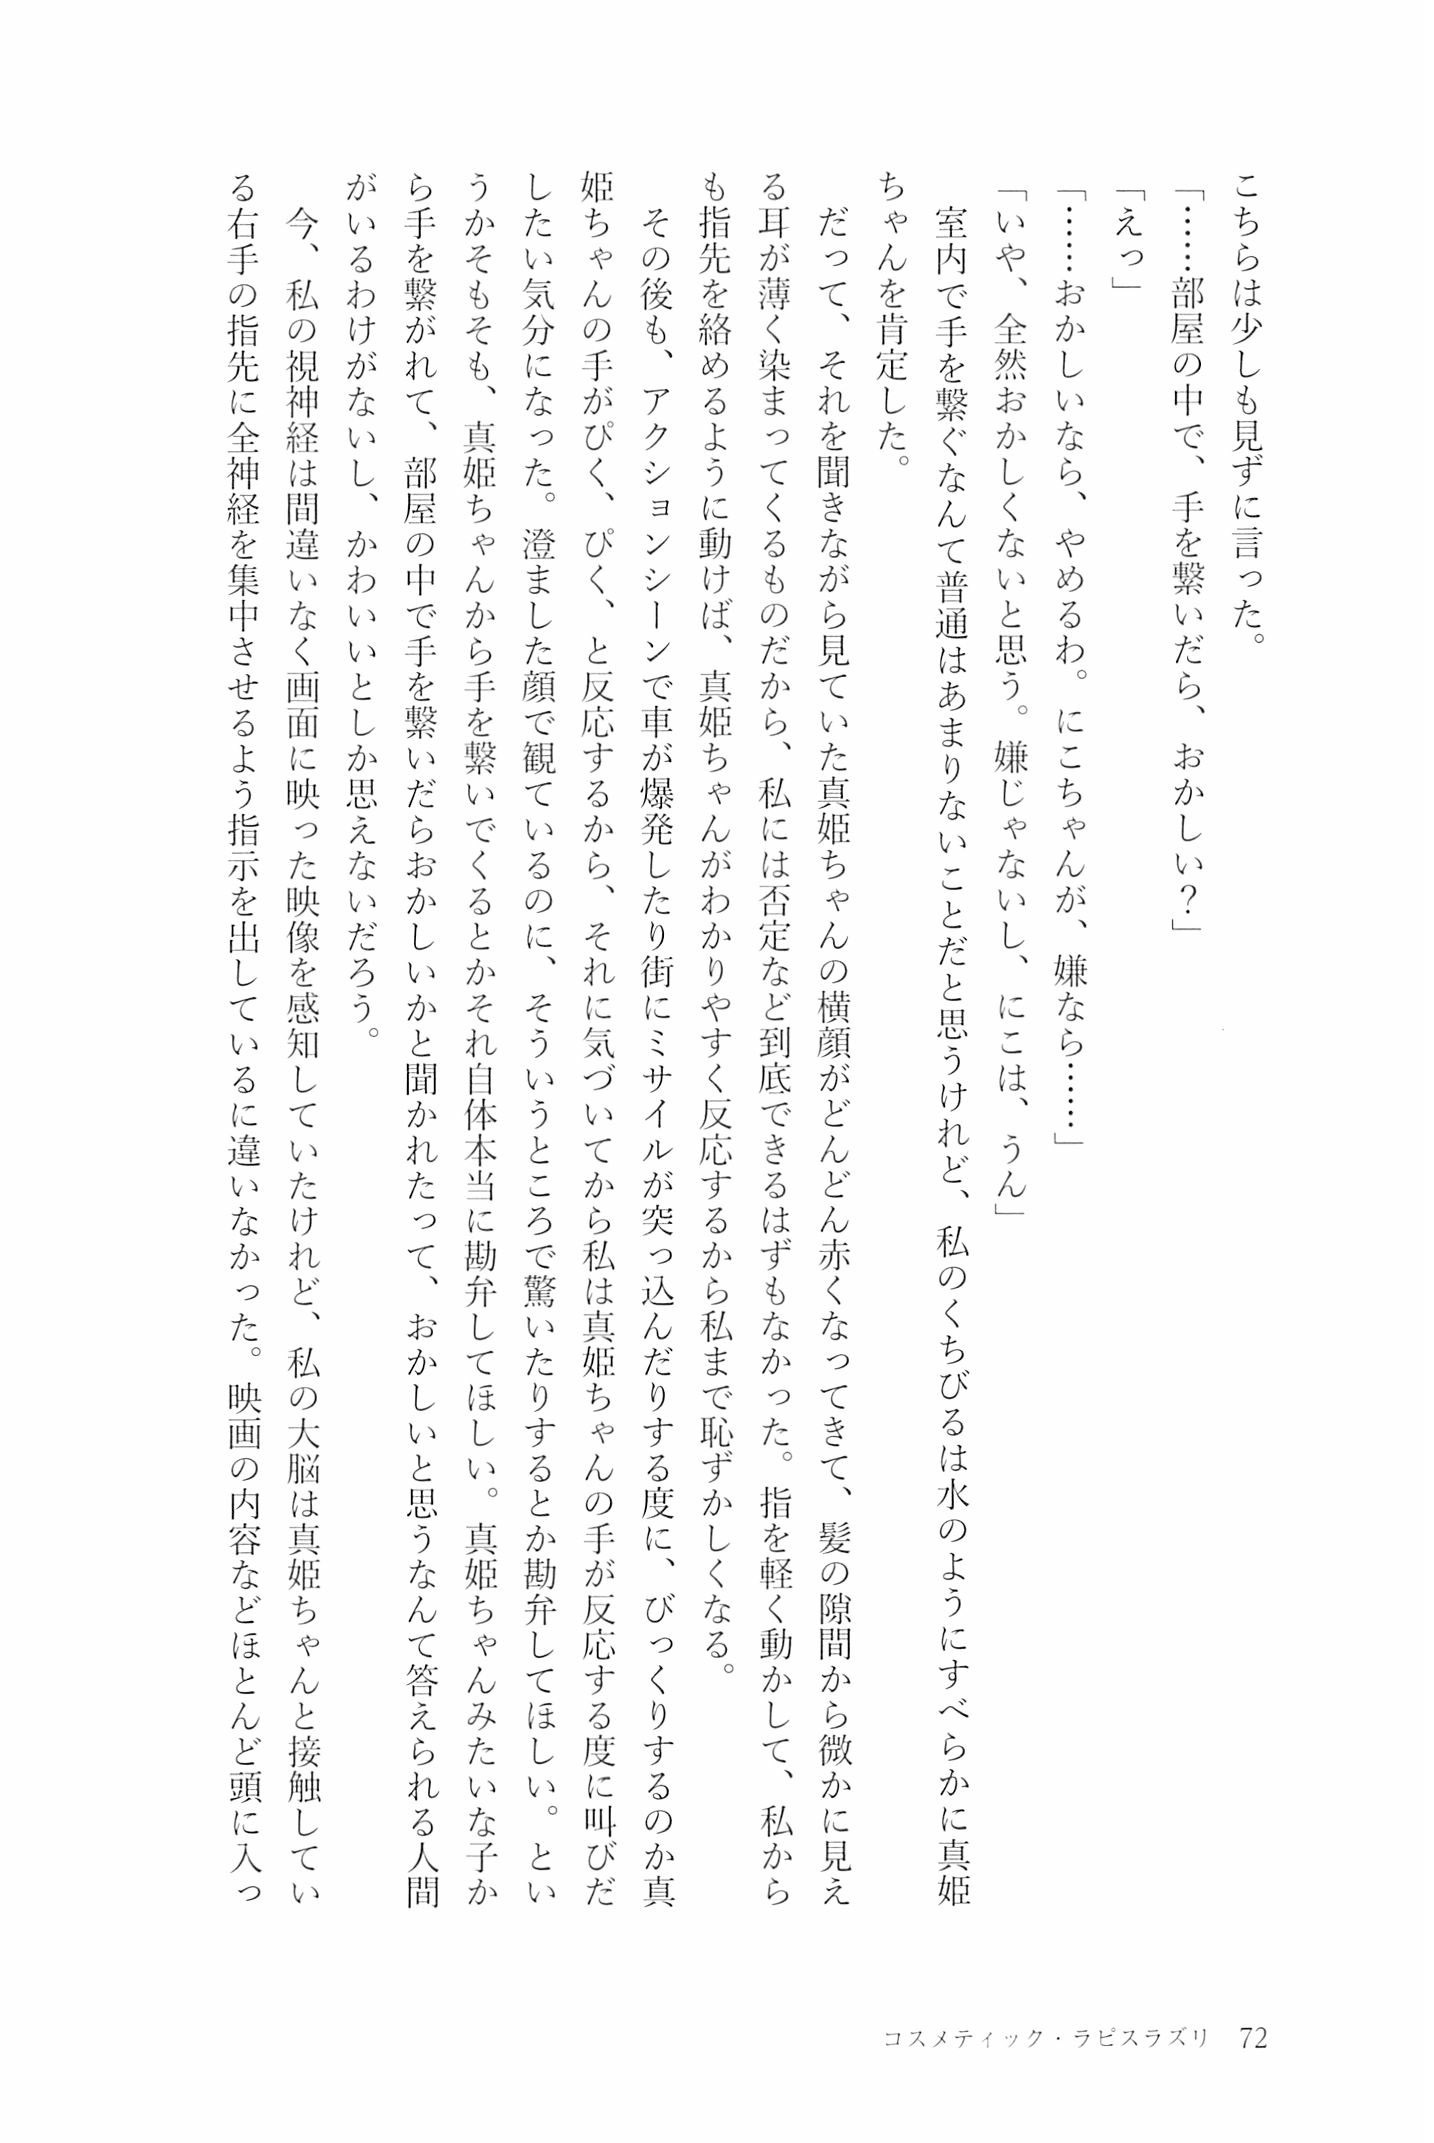 こちらは少しも見ずに言った。
「……部屋の中で、手を繋いだら、おかしい？」
「えっ」
「……おかしいなら、やめるわ。にこちゃんが、嫌なら……」
「いや、全然おかしくないと思う。嫌じゃないし、にこは、うん」
　室内で手を繋ぐなんて普通はあまりないことだと思うけれど、私のくちびるは水のようにすべらかに真姫
ちゃんを肯定した。
　だって、それを聞きながら見ていた真姫ちゃんの横顔がどんどん赤くなってきて、髪の隙間から微かに見え
る耳が薄く染まってくるものだから、私には否定など到底できるはずもなかった。指を軽く動かして、私から
も指先を絡めるように動けば、真姫ちゃんがわかりやすく反応するから私まで恥ずかしくなる。
　その後も、アクションシーンで車が爆発したり街にミサイルが突っ込んだりする度に、びっくりするのか真
姫ちゃんの手がぴく、ぴく、と反応するから、それに気づいてから私は真姫ちゃんの手が反応する度に叫びだ
したい気分になった。澄ました顔で観ているのに、そういうところで驚いたりするとか勘弁してほしい。とい
うかそもそも、真姫ちゃんから手を繋いでくるとかそれ自体本当に勘弁してほしい。真姫ちゃんみたいな子か
ら手を繋がれて、部屋の中で手を繋いだらおかしいかと聞かれたって、おかしいと思うなんて答えられる人間
がいるわけがないし、かわいいとしか思えないだろう。
　今、私の視神経は間違いなく画面に映った映像を感知していたけれど、私の大脳は真姫ちゃんと接触してい
る右手の指先に全神経を集中させるよう指示を出しているに違いなかった。映画の内容などほとんど頭に入っ
コスメティック・ラピスラズリ　72